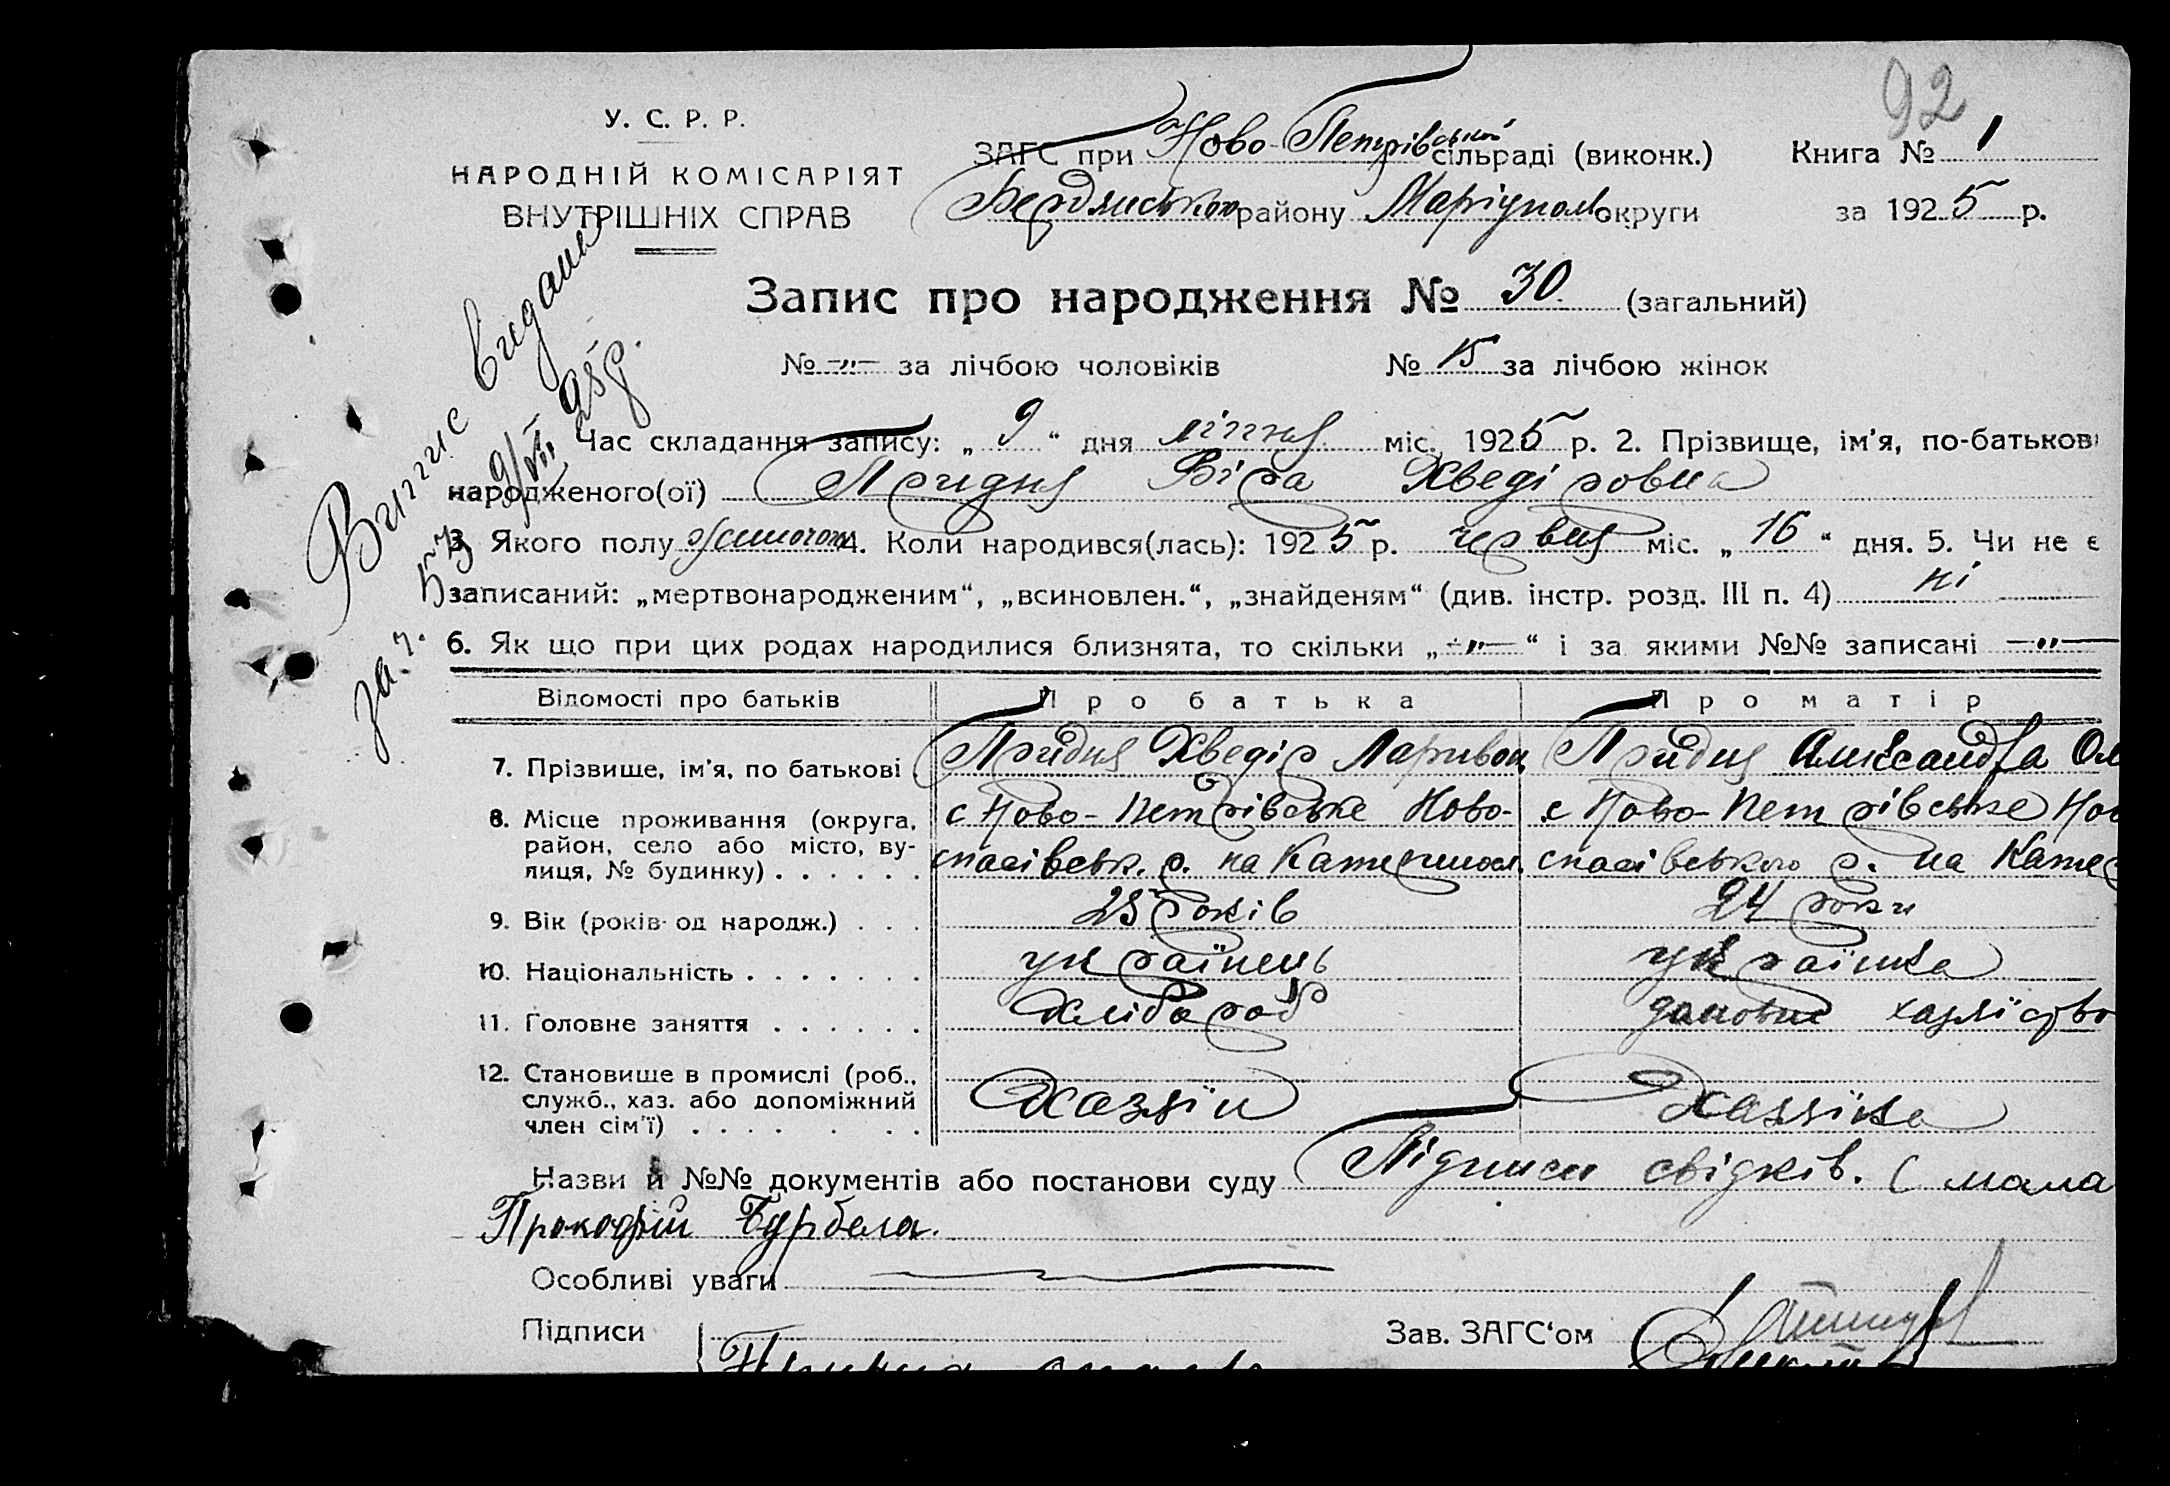 92
У. С. Р. Р.
НАРОДНІЙ КОМІСАРІЯТ
ВНУТРІШНІХ СПРАВ
ЗАГС при Ново-Петрівській сільраді (виконк.) Книга № 1
Бердянського району Маріуполь округи за 1925 р.
Запис про народження № 30 (загальний)
№ -„- за лічбою чоловіків № 15 за лічбою жінок
Час складання запису: „ 9 “ дня липня міс. 1925 р. 2. Прізвище, ім'я, по-батькові
народженого(ої) Придня Віра Хведіровна
3. Якого полу жиночого 4. Коли народився(лась): 1925 р. червня міс. „ 16 “ дня. 5. Чи не є
записаний: „мертвонародженим“, „всиновлен.“, „знайденям“ (див. інстр. розд. III п. 4) ні
6. Як що при цих родах народилися близнята, то скільки „ -„- “ і за якими №№ записані -„-
Випис видано
за ч. 53 9/VII 25 р.
Відомості про батьків Про батька Про матір
7. Прізвище, ім'я, по батькові Придня Хведір Ларивон Придня Александра Ол
8. Місце проживання (округа, район, село або місто, вулиця, № будинку) . . . . . .
с Ново-Петрівське Ново-
спасівськ. р. на Катериносл.
с Ново-Петрівське Ново
спасівського р. на Катер
9. Вік (років од народж.) . . . 25 років 24 роки
10. Національність . . . . . . . українець українка
11. Головне заняття . . . . . . Хлібороб домовне хазяїство
12. Становище в промислі (роб., служб., хаз. або допоміжний член сім'ї) . . . . . . Хазяїн Хазяїка
Назви й №№ документів або постанови суду Підписи свідків. ( мама
Прокофій Бурбела.
Особливі уваги
Підписи Зав. ЗАГС'ом